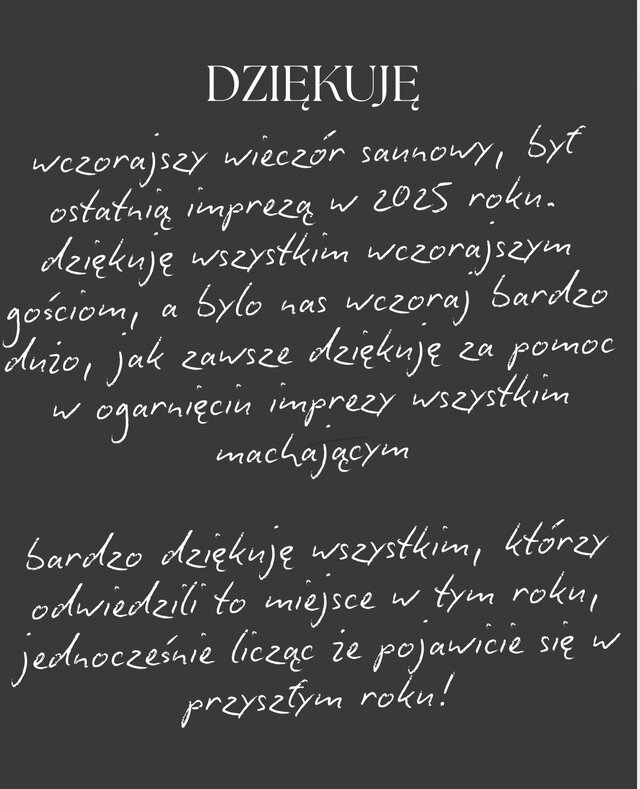 DZIĘKUJĘ
wczorajszy wieczór saunowy, był
ostatnią imprezą w 2025 roku.
dziękuję wszystkim wczorajszym
gościom, a bylo nas wczoraj bardzo
dużo, jak zawsze dziękuję za pomoc
w ogarnięciu imprezy wszystkim
machającym
bardzo dziękuję wszystkim, którzy
odwiedzili to miejsce w tym roku,
jednocześnie licząc że pojawicie się w
przyszłym roku!